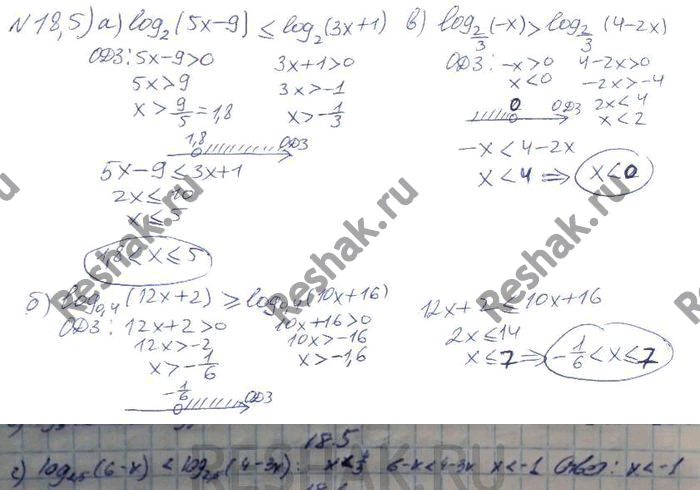 N18,5) а) log₂(5x-9) ≤ log₂(3x+1)
ОДЗ: 5x-9>0 3x+1>0
5x>9 3x>-1
x>9/5=1,8 x>-1/3
1,8 ОДЗ
5x-9≤3x+1
2x≤10
x≤5
1,8<x≤5
в) log_{2/3}(-x)>log_{2/3}(4-2x)
ОДЗ: -x>0 4-2x>0
x<0 -2x>-4
0 ОДЗ 2x<4
x<2
-x<4-2x
x<4 ⇒ x<0
б) log_{0,4}(12x+2) ≥ log_{0,4}(10x+16)
ОДЗ: 12x+2>0 10x+16>0
12x>-2 10x>-16
x>-1/6 x>-1,6
-1/6 ОДЗ
12x+2≤10x+16
2x≤14
x≤7 ⇒ -1/6<x≤7
18.5
г) log_{2,5}(6-x) < log_{2,5}(4-3x): x<4/3 6-x<4-3x x<-1 Ответ: x<-1
Reshak.ru
Reshak.ru
Reshak.ru
Reshak.ru
RESHAK.RU